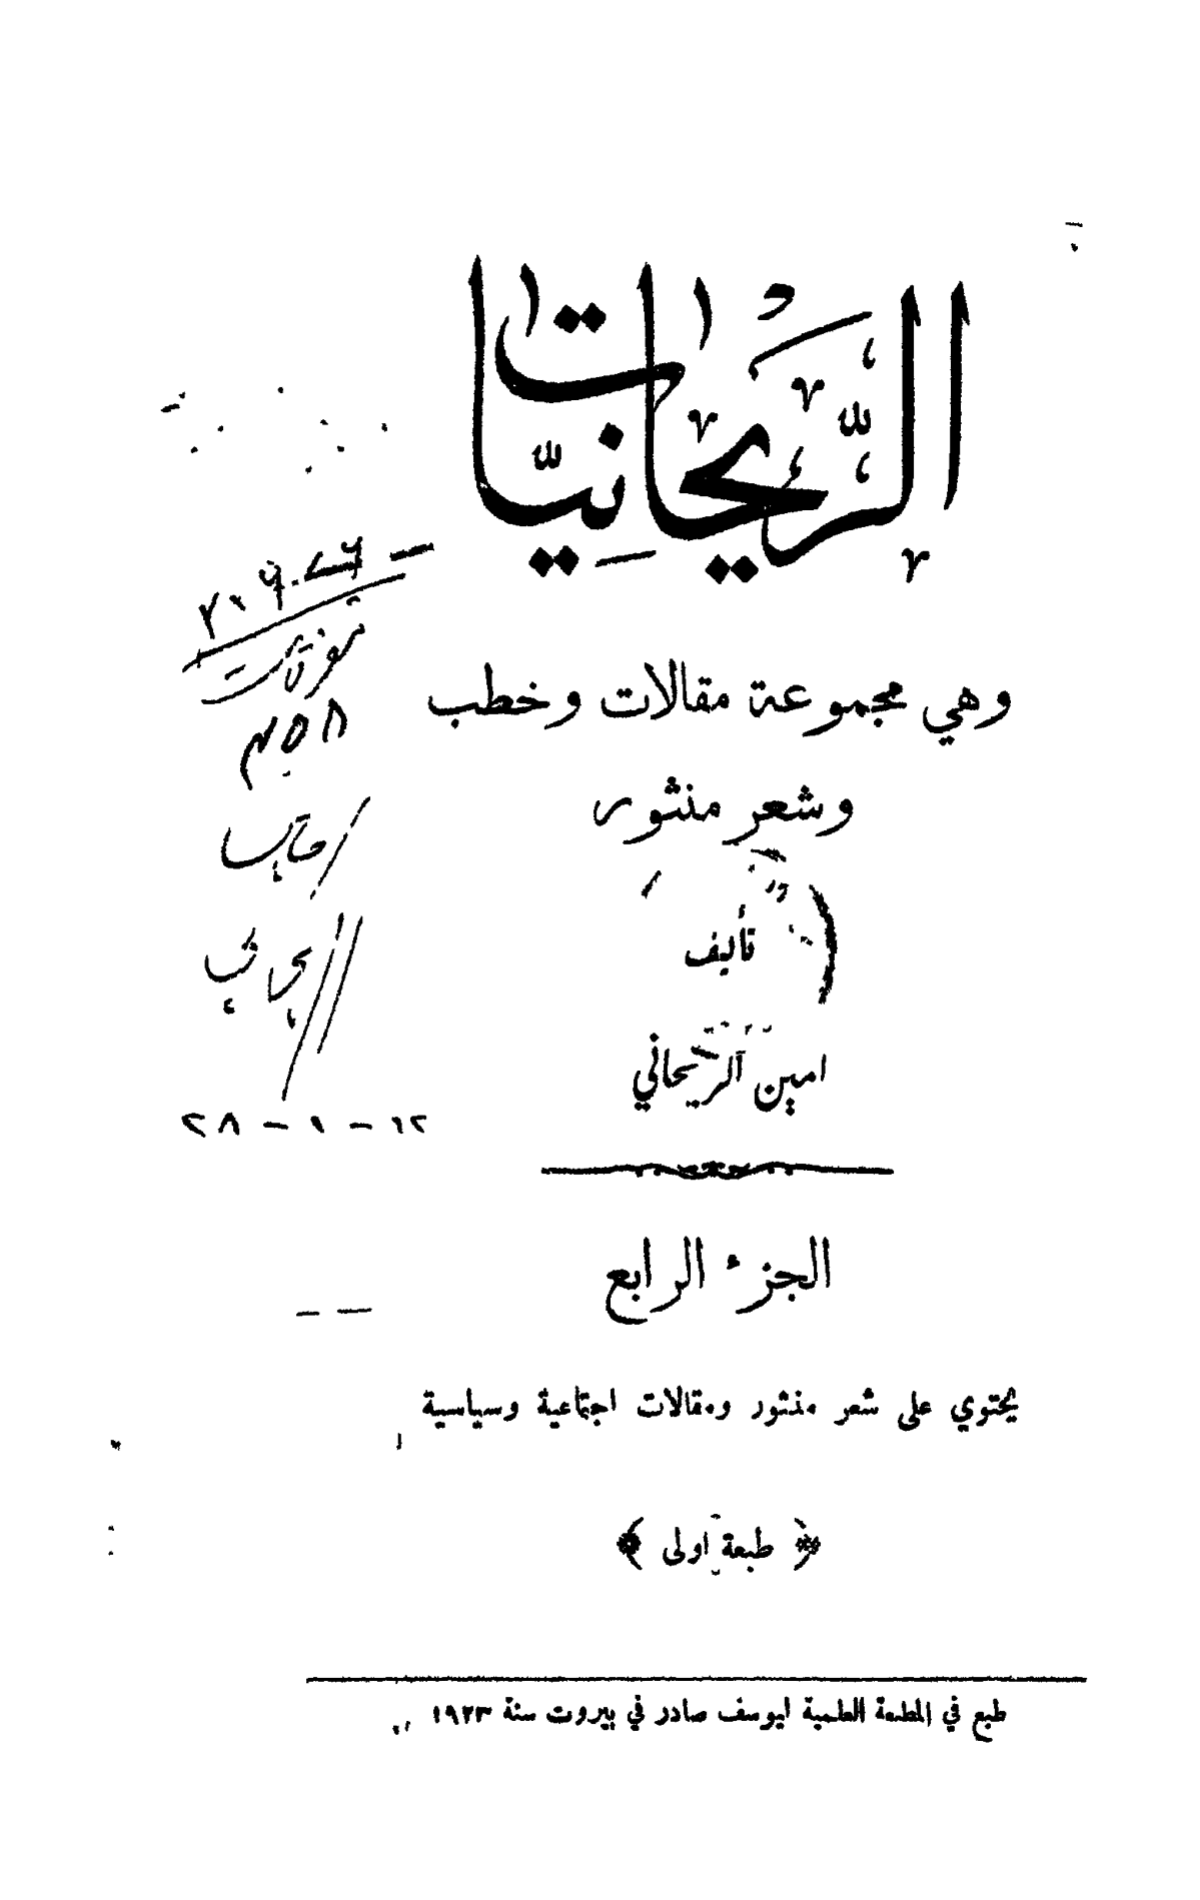 الرَّيحَانيَّات
وهي مجموعة مقالات وخطب
وشعر منثور
تأليف
امين الريحاني
الجزء الرابع
يحتوي على شعر منثور ومقالات اجتماعية وسياسية
﴿ طبعة اولى ﴾
طبع في المطبعة العلمية ليوسف صادر في بيروت سنة ١٩٢٣
متفرقات
٤٥٨
٢٨ - ١ - ١٢